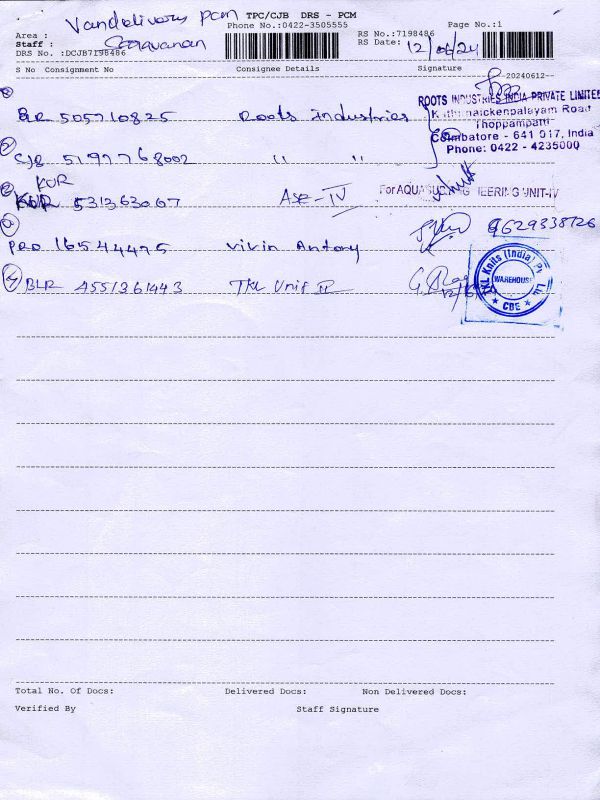 Vandelivery pcm TPC/CJB DRS - PCM Page No.:1
Area : Phone No.:0422-3505555 RS No.:7198486
Staff : Saravanan RS Date: 12/06/24
DRS No. :DCJB7198486
S No Consignment No Consignee Details Signature
--20240612--
ROOTS INDUSTRIES INDIA PRIVATE LIMITED
Kathirnaickenpalayam Road
Thoppampatti
Coimbatore - 641 017, India
Phone: 0422 - 4235000
BLR 505710825 Roots industries
CJB 51997768002 " "
KUR
KUR 531363067 ASE-IV For AQUASUB ENGINEERING UNIT-IV
PRO 16544475 Vivin Antony 9629338726
BLR A551361443 TKL Unit II
TKL Knits (India) Pvt. Ltd.
WAREHOUSE
CBE
Total No. Of Docs: Delivered Docs: Non Delivered Docs:
Verified By Staff Signature